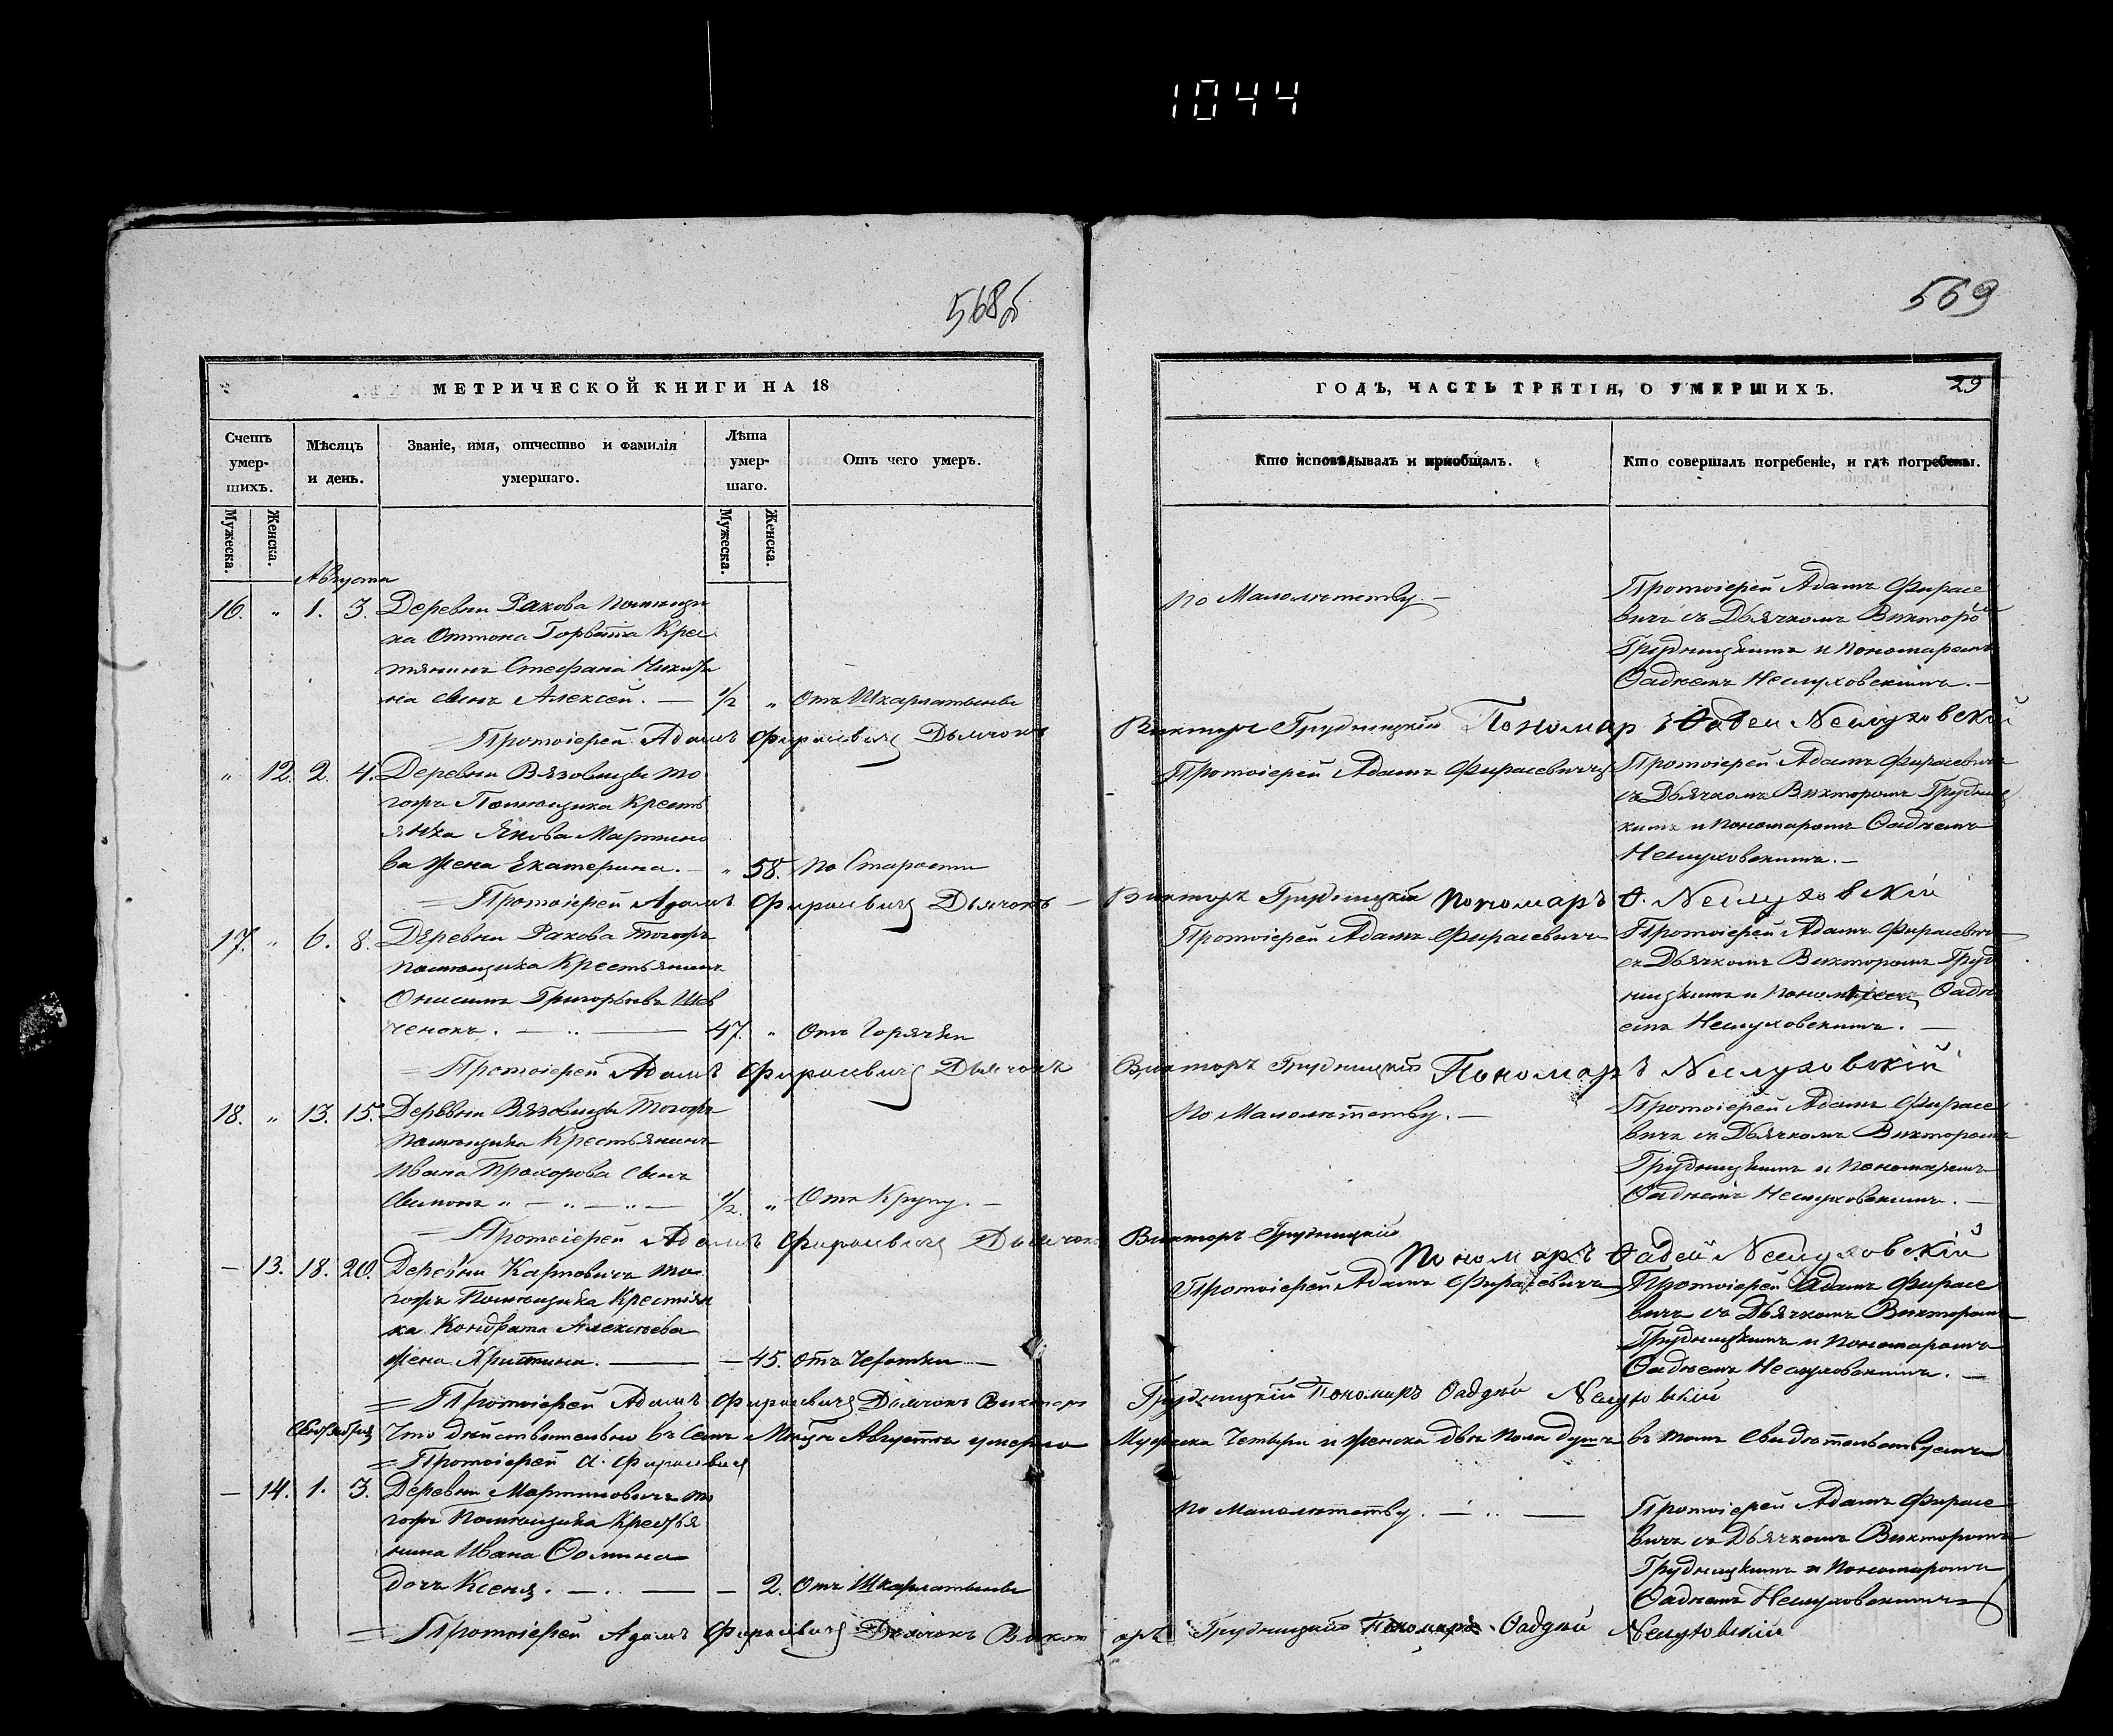 1044
568б
569
МЕТРИЧЕСКОЙ КНИГИ НА 18
ГОДЪ, ЧАСТЬ ТРЕТІЯ, О УМЕРШИХЪ.
29
Счетъ умер-шихъ.
Мѣсяцъ и день.
Званіе, имя, отчество и фамилія умершаго.
Лѣта умер-шаго.
Отъ чего умеръ.
Кто исповѣдывалъ и приобщалъ.
Кто совершалъ погребеніе, и гдѣ погребены.
Мужеска.
Женска.
Мужеска.
Женска.
Августа
16. " 1. 3. Деревни Рахова помѣщи
ка Оттона Горвата Крес
тянина Стефана
на сынъ Алексей. — 1/2 " Отъ Шкарлатыны
По Малолѣтству. —
Протоіерей Адамъ Фирасе
вичъ съ Дьячкомъ Викторо
Грудницкимъ и Пономаремъ
Ѳадѣемъ Неслуховскимъ. —
= Протоіерей Адамъ Фирасевичъ Дьячокъ Викторъ Грудницкій Пономаръ Ѳадей Неслуховскій
" 12. 2. 4. Деревни Вязовицы то
гожъ Помѣщика Кресть
янка Якова Мартино
ва жена Екатерина. — " 58. По Старости
Протоіерей Адамъ Фирасевичъ
Протоіерей Адамъ Фирасевичъ
съ Дьячкомъ Викторомъ Грудниц
кимъ и Пономаромъ Ѳадѣемъ
Неслуховскимъ. —
= Протоіерей Адамъ Фирасевичъ Дьячокъ — Викторъ Грудницкій Пономаръ Ѳ. Неслуховскій
17. " 6. 8. Деревни Рахова тогожъ
помѣщика Крестьянинъ
Онисимъ Григорьевъ Шев
ченокъ. — " — 47. " Отъ Горячки
Протоіерей Адамъ Фирасевичъ
Протоіерей Адамъ Фирасевичъ
съ Дьячкомъ Викторомъ Груд
ницкимъ и Ѳадѣ
емъ Неслуховскимъ. —
= Протоіерей Адамъ Фирасевичъ Дьячокъ Викторъ Грудницкій Пономаръ Неслуховскій
18. " 13. 15. Деревни Вязовицы тогожъ
помѣщика Крестьянина
Ивана Прохорова сынъ
Симонъ " — " — " — 1/2. " Отъ Крупу. —
По Малолѣтству. —
Протоіерей Адамъ Фирасе
вичъ съ Дьячкомъ Викторомъ
Грудницкимъ и Пономаремъ
Ѳадѣемъ Неслуховскимъ. —
= Протоіерей Адамъ Фирасевичъ Дьячокъ Викторъ Грудницкій
Пономаръ Ѳадей Неслуховскій
— 13. 18. 20. Деревни Карповичъ то
гожъ Помѣщика Крестьян
ка Кондрата Алексѣева
жена Христина. — — 45. Отъ Чехотки —
Протоіерей Адамъ Фирасевичъ
Протоіерей Адамъ Фирасе
вичъ съ Дьячкомъ Викторомъ
Грудницкимъ и Пономаромъ
Ѳадѣемъ Неслуховскимъ. —
= Протоіерей Адамъ Фирасевичъ Дьячокъ Викторъ Грудницкій Пономаръ Ѳаддей Неслуховскій
Что дѣйствительно въ семъ Мѣсяцѣ Августѣ умерло Мужеска Четыри и Женска двѣ пола душъ въ томъ Свидѣтельствуемъ
= Протоіерей А. Фирасевичъ
Сентября
— 14. 1. 3. Деревни Мартиновичъ то
гожъ Помѣщика Крестья
нина Ивана Ѳомина
дочъ Ксенія. — " — — 2. Отъ Шкарлатыны
По Малолѣтству. — " —
Протоіерей Адамъ Фирасе
вичъ съ Дьячкомъ Викторомъ
Грудницкимъ и Пономаромъ
Ѳадѣемъ Неслуховскимъ
= Протоіерей Адамъ Фирасевичъ Дьячокъ Викторъ Грудницкій Пономаръ Ѳаддей Неслуховскій